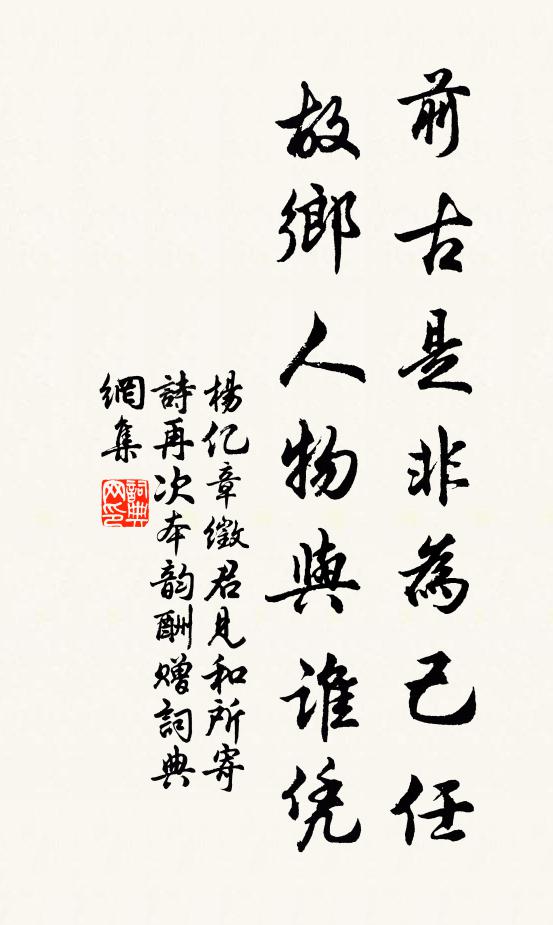 前古是非為己任
故鄉人物與誰凭
楊亿章徵君見和所寄
詩再次本韵酬赠詞典
網集
詞典
网印